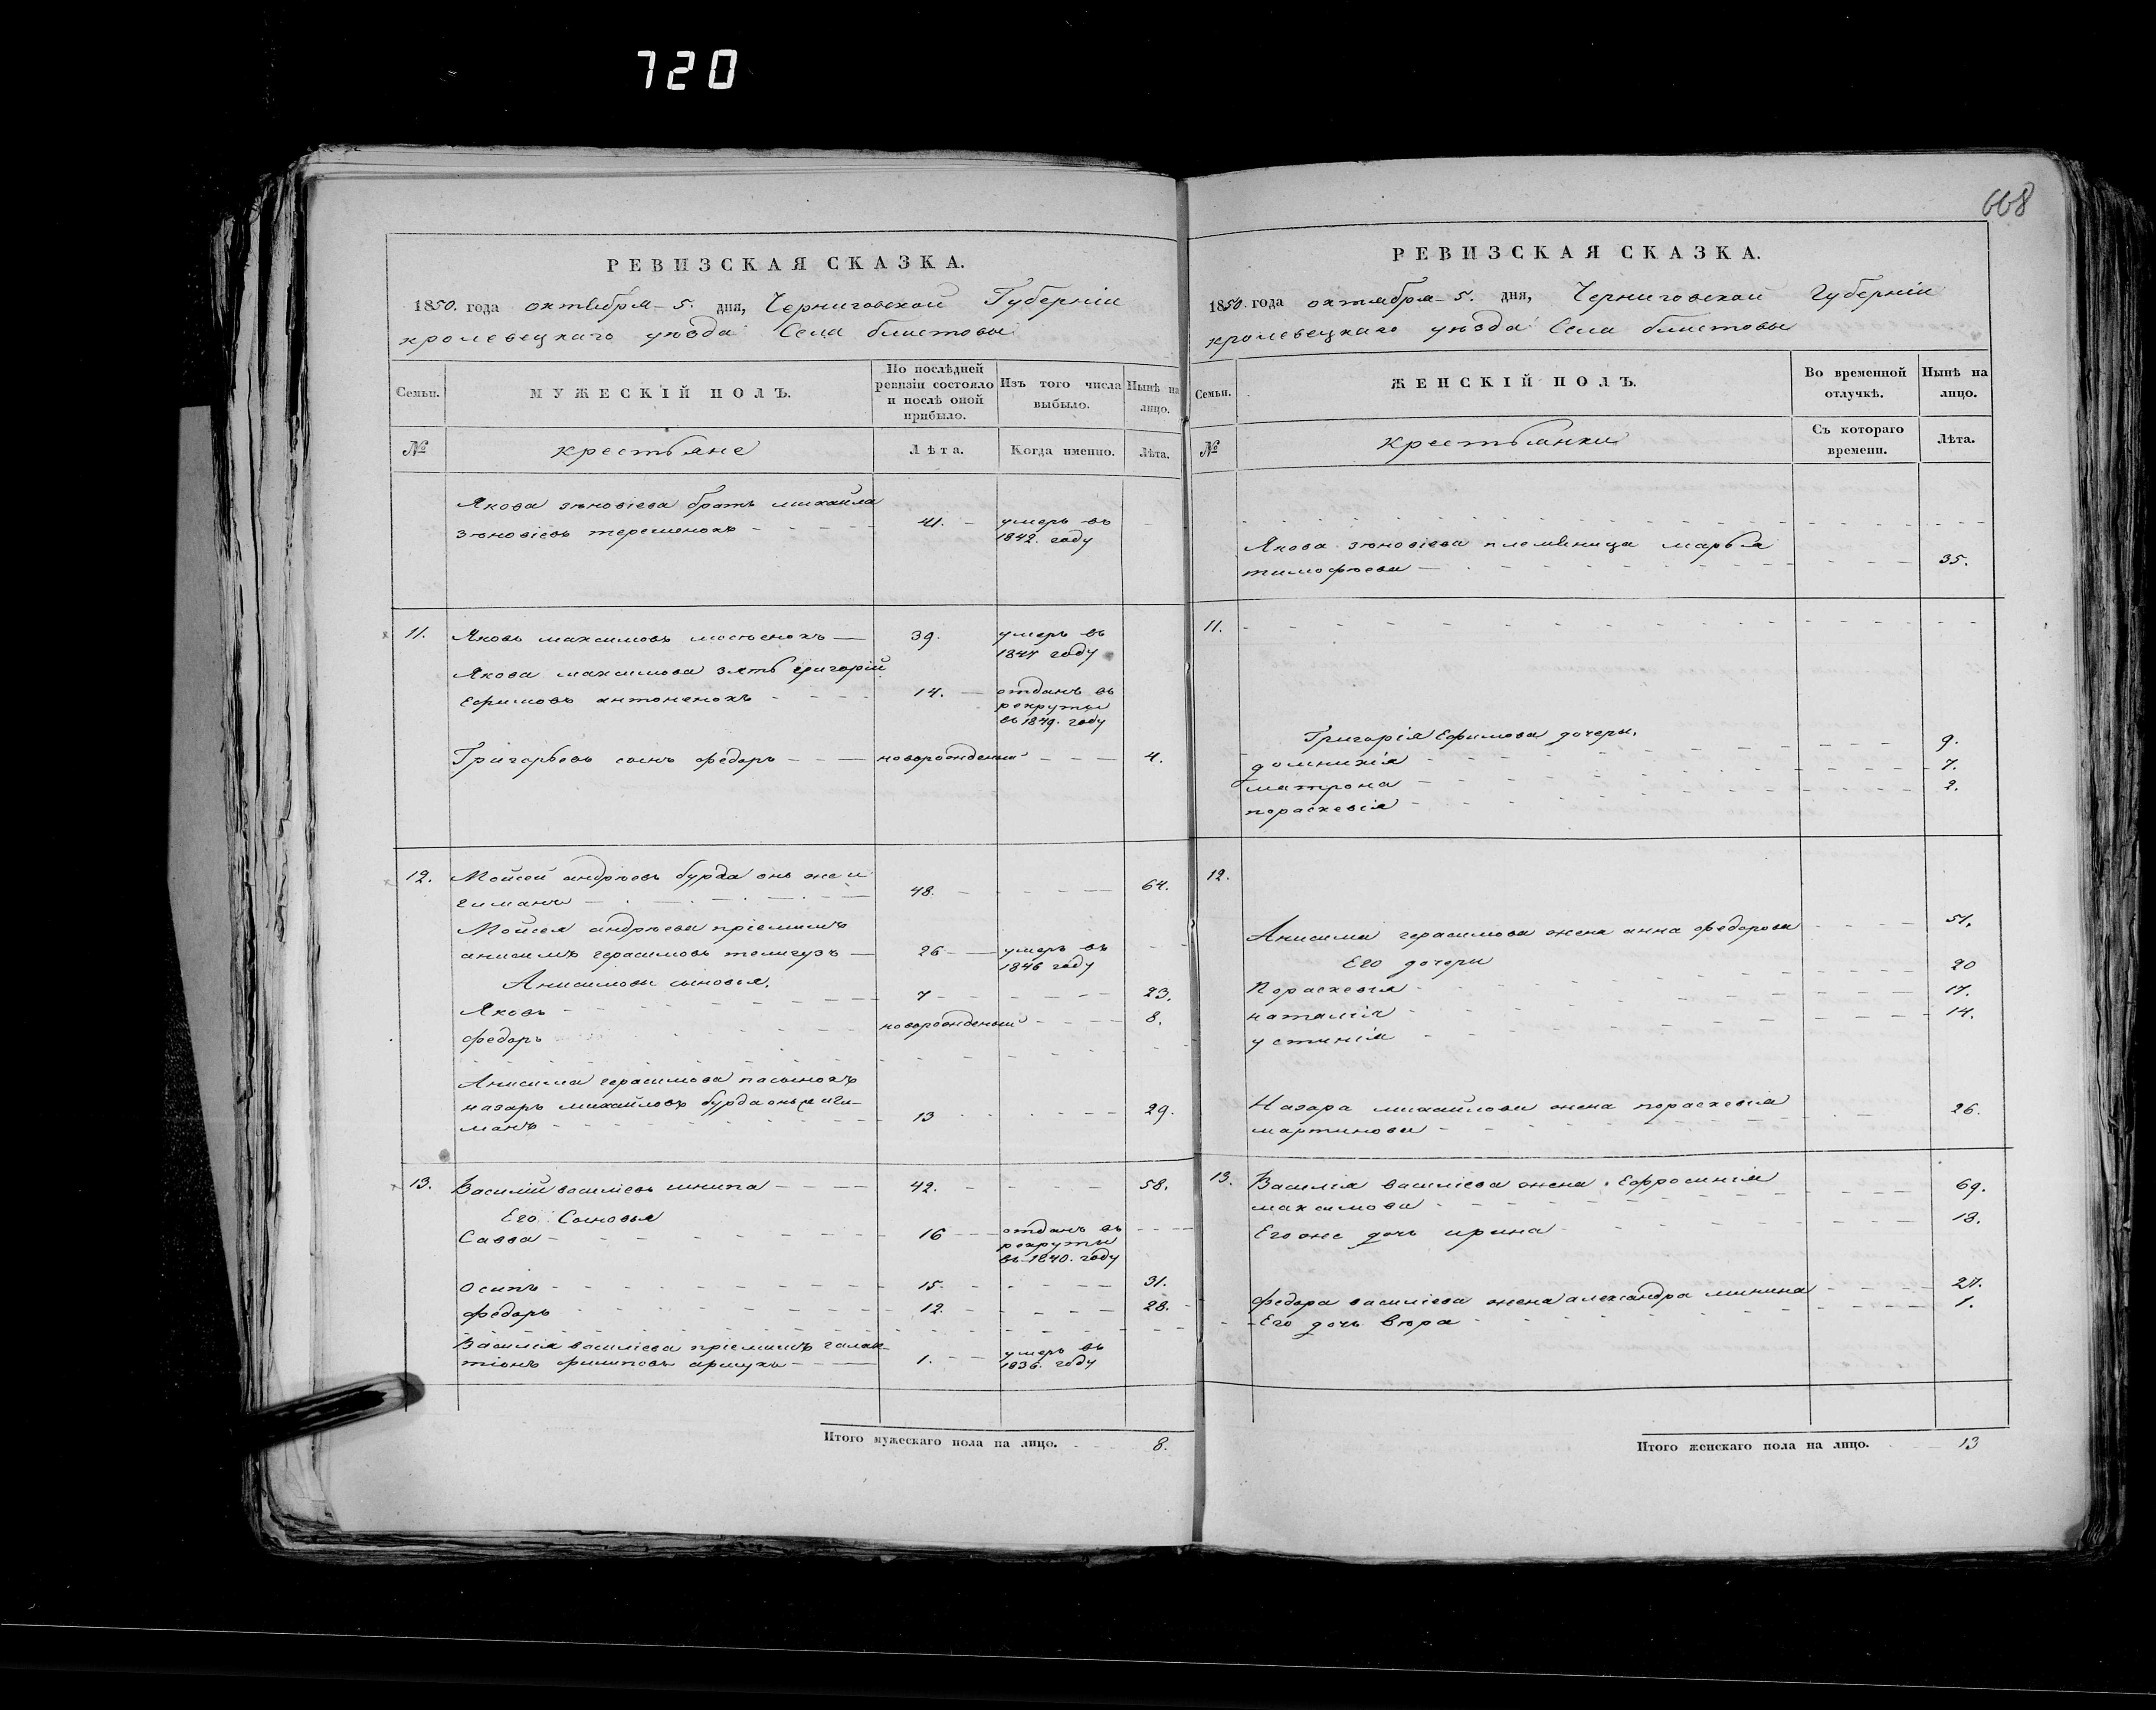 720
668
РЕВИЗСКАЯ СКАЗКА.
1850. года октября 5. дня, Черниговской Губерніи
кролевецкаго уезда Села блистовы
Семьи.
МУЖЕСКІЙ ПОЛЪ.
По послѣдней
ревизіи состояло
и послѣ оной
прибыло.
Изъ того числа
выбыло.
Нынѣ на
лицо.
№
крестьяне
Лѣта.
Когда именно.
Лѣта.
Якова зѣновіева братъ михаила
зѣновіевъ терешенокъ 41. умеръ въ
1842. году
11. Яковъ максимовъ 39. умеръ въ
1847 году
Якова максимова зять григорій
Ефимовъ антоненокъ 14. отданъ въ
рекруты
въ 1849. году
Григорьевъ сынъ федоръ новорожденый 4.
12. Мойсей андрѣевъ бурда онъ же и
гиманъ 48. 64.
Мойсея андрѣева пріемышъ
анисимъ герасимовъ 26 умеръ въ
1846 году
Анисимовы сыновья.
Яковъ 7 23.
федоръ новорожденый 8.
Анисима герасимова пасынокъ
назаръ михайловъ бурда онъ же и ги-
манъ 13 29.
13. Василій василіевъ шкипа 42. 58.
Его Сыновья
Савва 16 отданъ въ
рекруты
въ 1840. году
Осипъ 15. 31.
федоръ 12. 28.
Василія василіева пріемышъ галак-
тіонъ филиповъ 1. умеръ въ
1836. году
Итого мужескаго пола на лицо. 8.
РЕВИЗСКАЯ СКАЗКА.
1850. года октября 5. дня, Черниговской Губерніи
кролевецкаго уезда Села блистовы
Семьи.
ЖЕНСКІЙ ПОЛЪ.
Во временной
отлучкѣ.
Нынѣ на
лицо.
№
крестьянки
Съ котораго
времени.
Лѣта.
Якова зѣновіева племѣница марья
тимофѣева 35.
11.
Григорія Ефимова дочеры.
домникія 9.
матрона 7.
пораскевія 2.
12.
Анисима герасимова жена анна федорова 51.
Его дочери
Пораскевія 20
наталія 17.
устинія 14.
Назара михайлова жена пораскевія
мартинова 26.
13. Василія василіева жена Ефросинія
максимова 69.
Его же дочь ирина 18.
федора василіева жена александра минина 27.
Его дочь вѣра 1.
Итого женскаго пола на лицо. 13